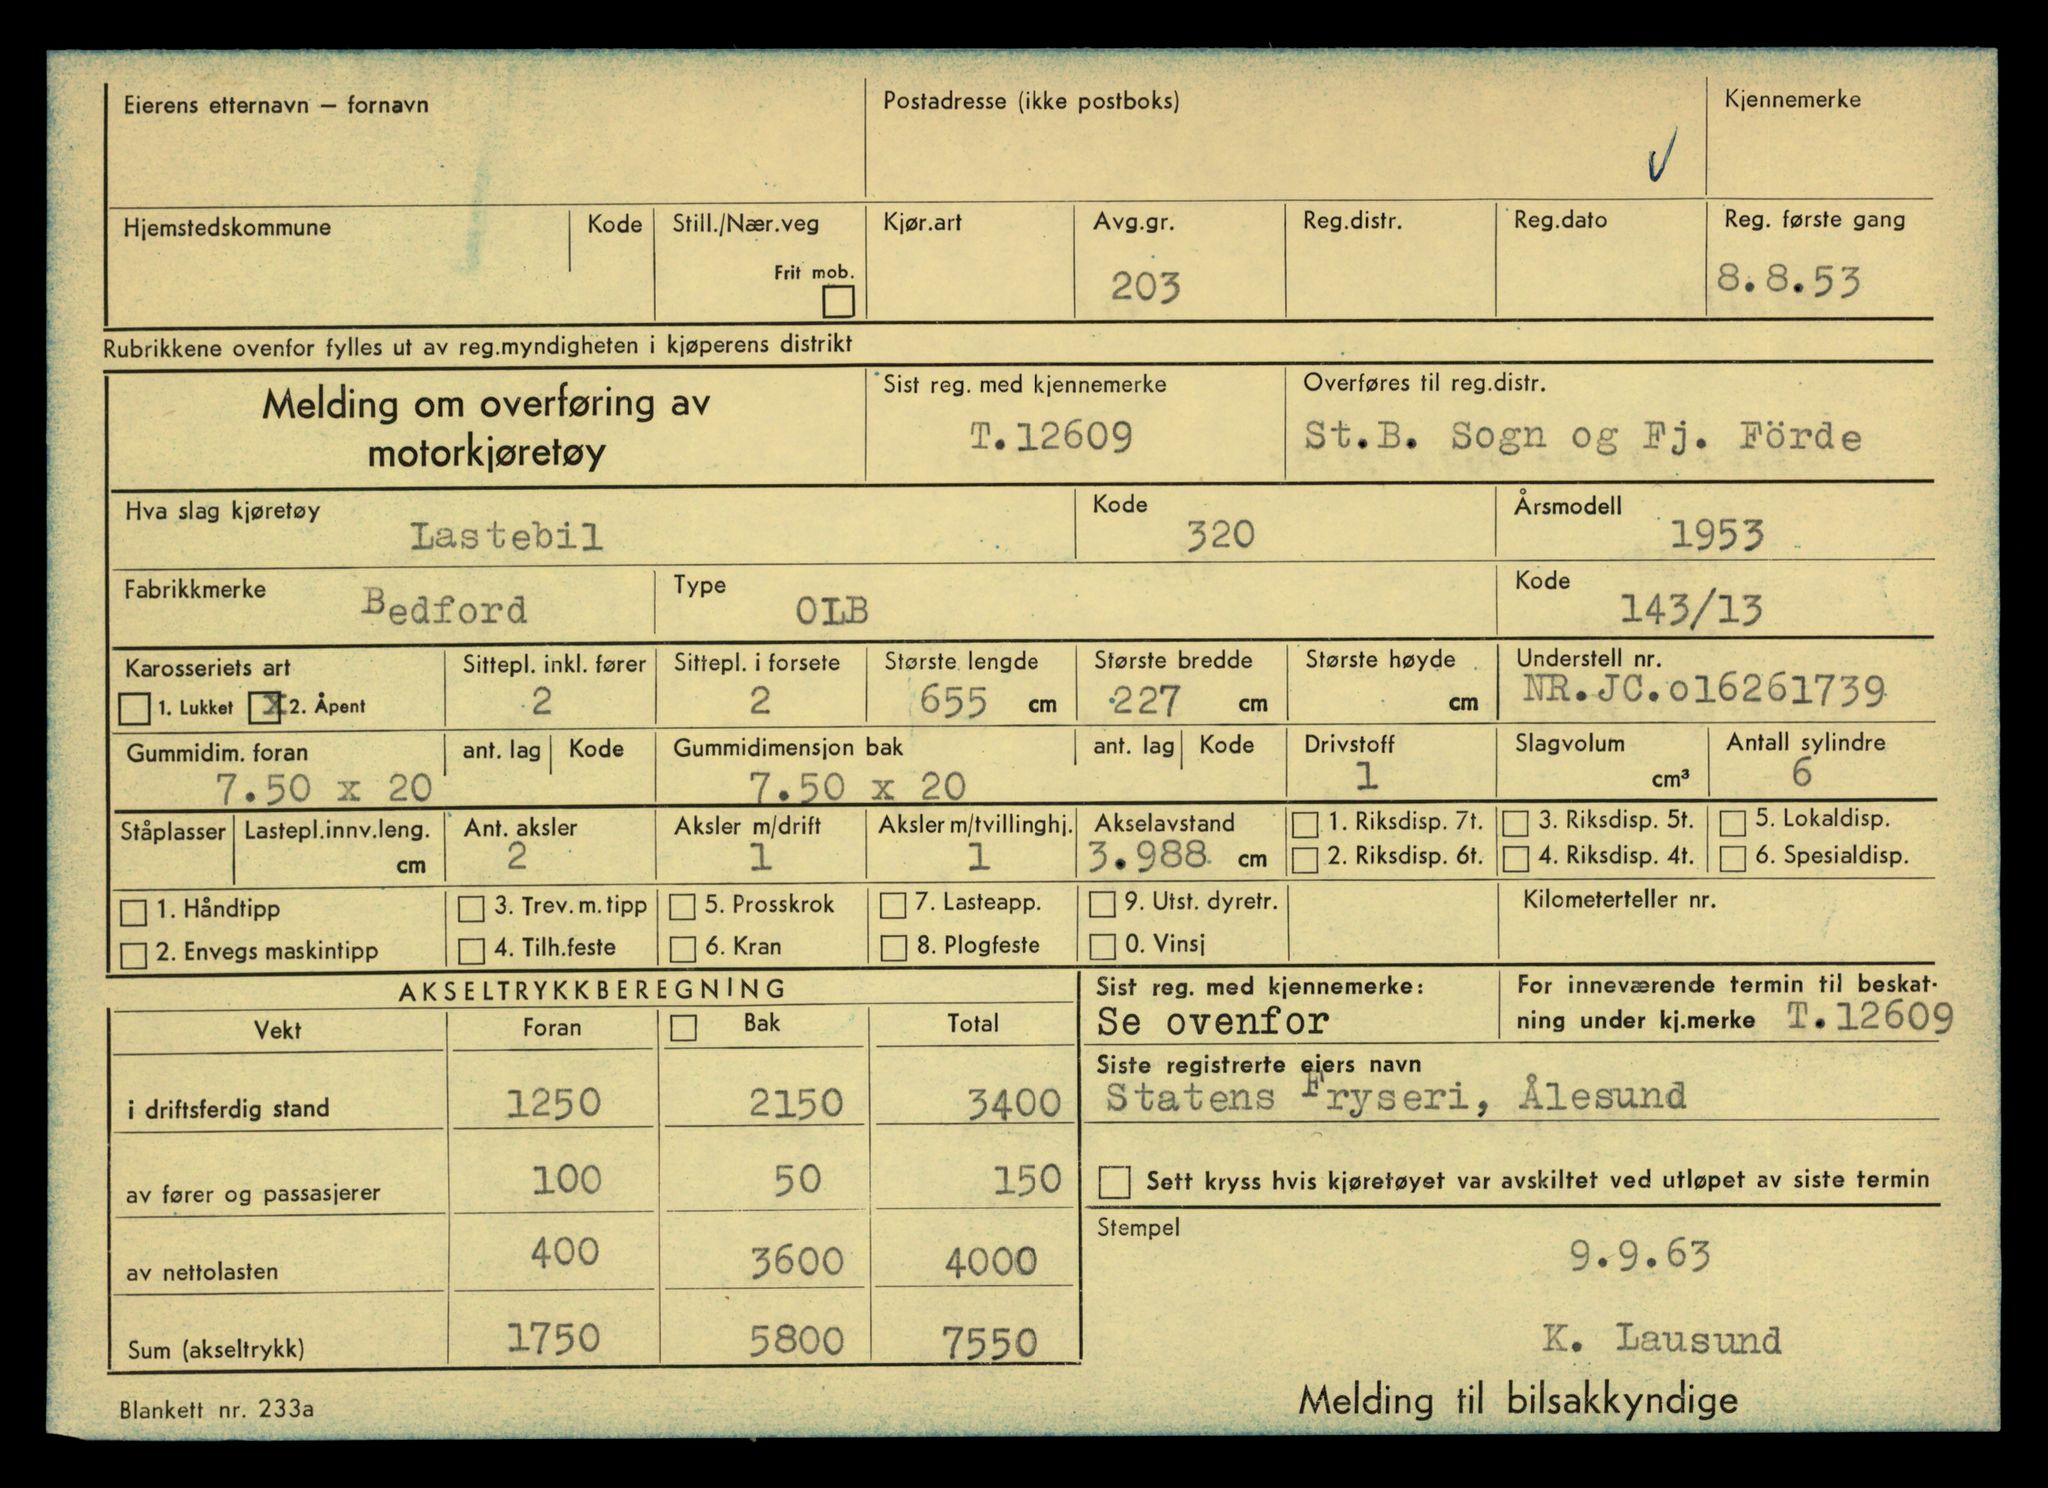 Eierens etternavn – fornavn
Postadresse (ikke postboks)
Kjennemerke
Hjemstedskommune
Kode
Still./Nær.veg
Frit mob.
Kjør.art
Avg.gr.
203
Reg.distr.
Reg.dato
Reg. første gang
8.8.53
Rubrikkene ovenfor fylles ut av reg.myndigheten i kjøperens distrikt
Melding om overføring av
motorkjøretøy
Sist reg. med kjennemerke
T.12609
Overføres til reg.distr.
St.B. Sogn og Fj. Förde
Hva slag kjøretøy
Lastebil
Kode
320
Årsmodell
1953
Fabrikkmerke
Bedford
Type
OLB
Kode
143/13
Karosseriets art
1. Lukket x 2. Åpent
Sittepl. inkl. fører
2
Sittepl. i forsete
2
Største lengde
655 cm
Største bredde
227 cm
Største høyde
cm
Understell nr.
NR.JC.016261739
Gummidim. foran
7.50 x 20
ant. lag
Kode
Gummidimensjon bak
7.50 x 20
ant. lag
Kode
Drivstoff
1
Slagvolum
cm³
Antall sylindre
6
Ståplasser
Lastepl.innv.leng.
cm
Ant. aksler
2
Aksler m/drift
1
Aksler m/tvillinghj.
1
Akselavstand
3.988 cm
1. Riksdisp. 7t.
2. Riksdisp. 6t.
3. Riksdisp. 5t.
4. Riksdisp. 4t.
5. Lokaldisp.
6. Spesialdisp.
1. Håndtipp
2. Envegs maskintipp
3. Trev. m. tipp
4. Tilh.feste
5. Prosskrok
6. Kran
7. Lasteapp.
8. Plogfeste
9. Utst. dyretr.
0. Vinsj
Kilometerteller nr.
AKSELTRYKKBEREGNING
Vekt Foran Bak Total
i driftsferdig stand 1250 2150 3400
av fører og passasjerer 100 50 150
av nettolasten 400 3600 4000
Sum (akseltrykk) 1750 5800 7550
Sist reg. med kjennemerke:
Se ovenfor
For inneværende termin til beskat-
ning under kj.merke T.12609
Siste registrerte eiers navn
Statens Fryseri, Ålesund
Sett kryss hvis kjøretøyet var avskiltet ved utløpet av siste termin
Stempel
9.9.63
K. Lausund
Blankett nr. 233a
Melding til bilsakkyndige